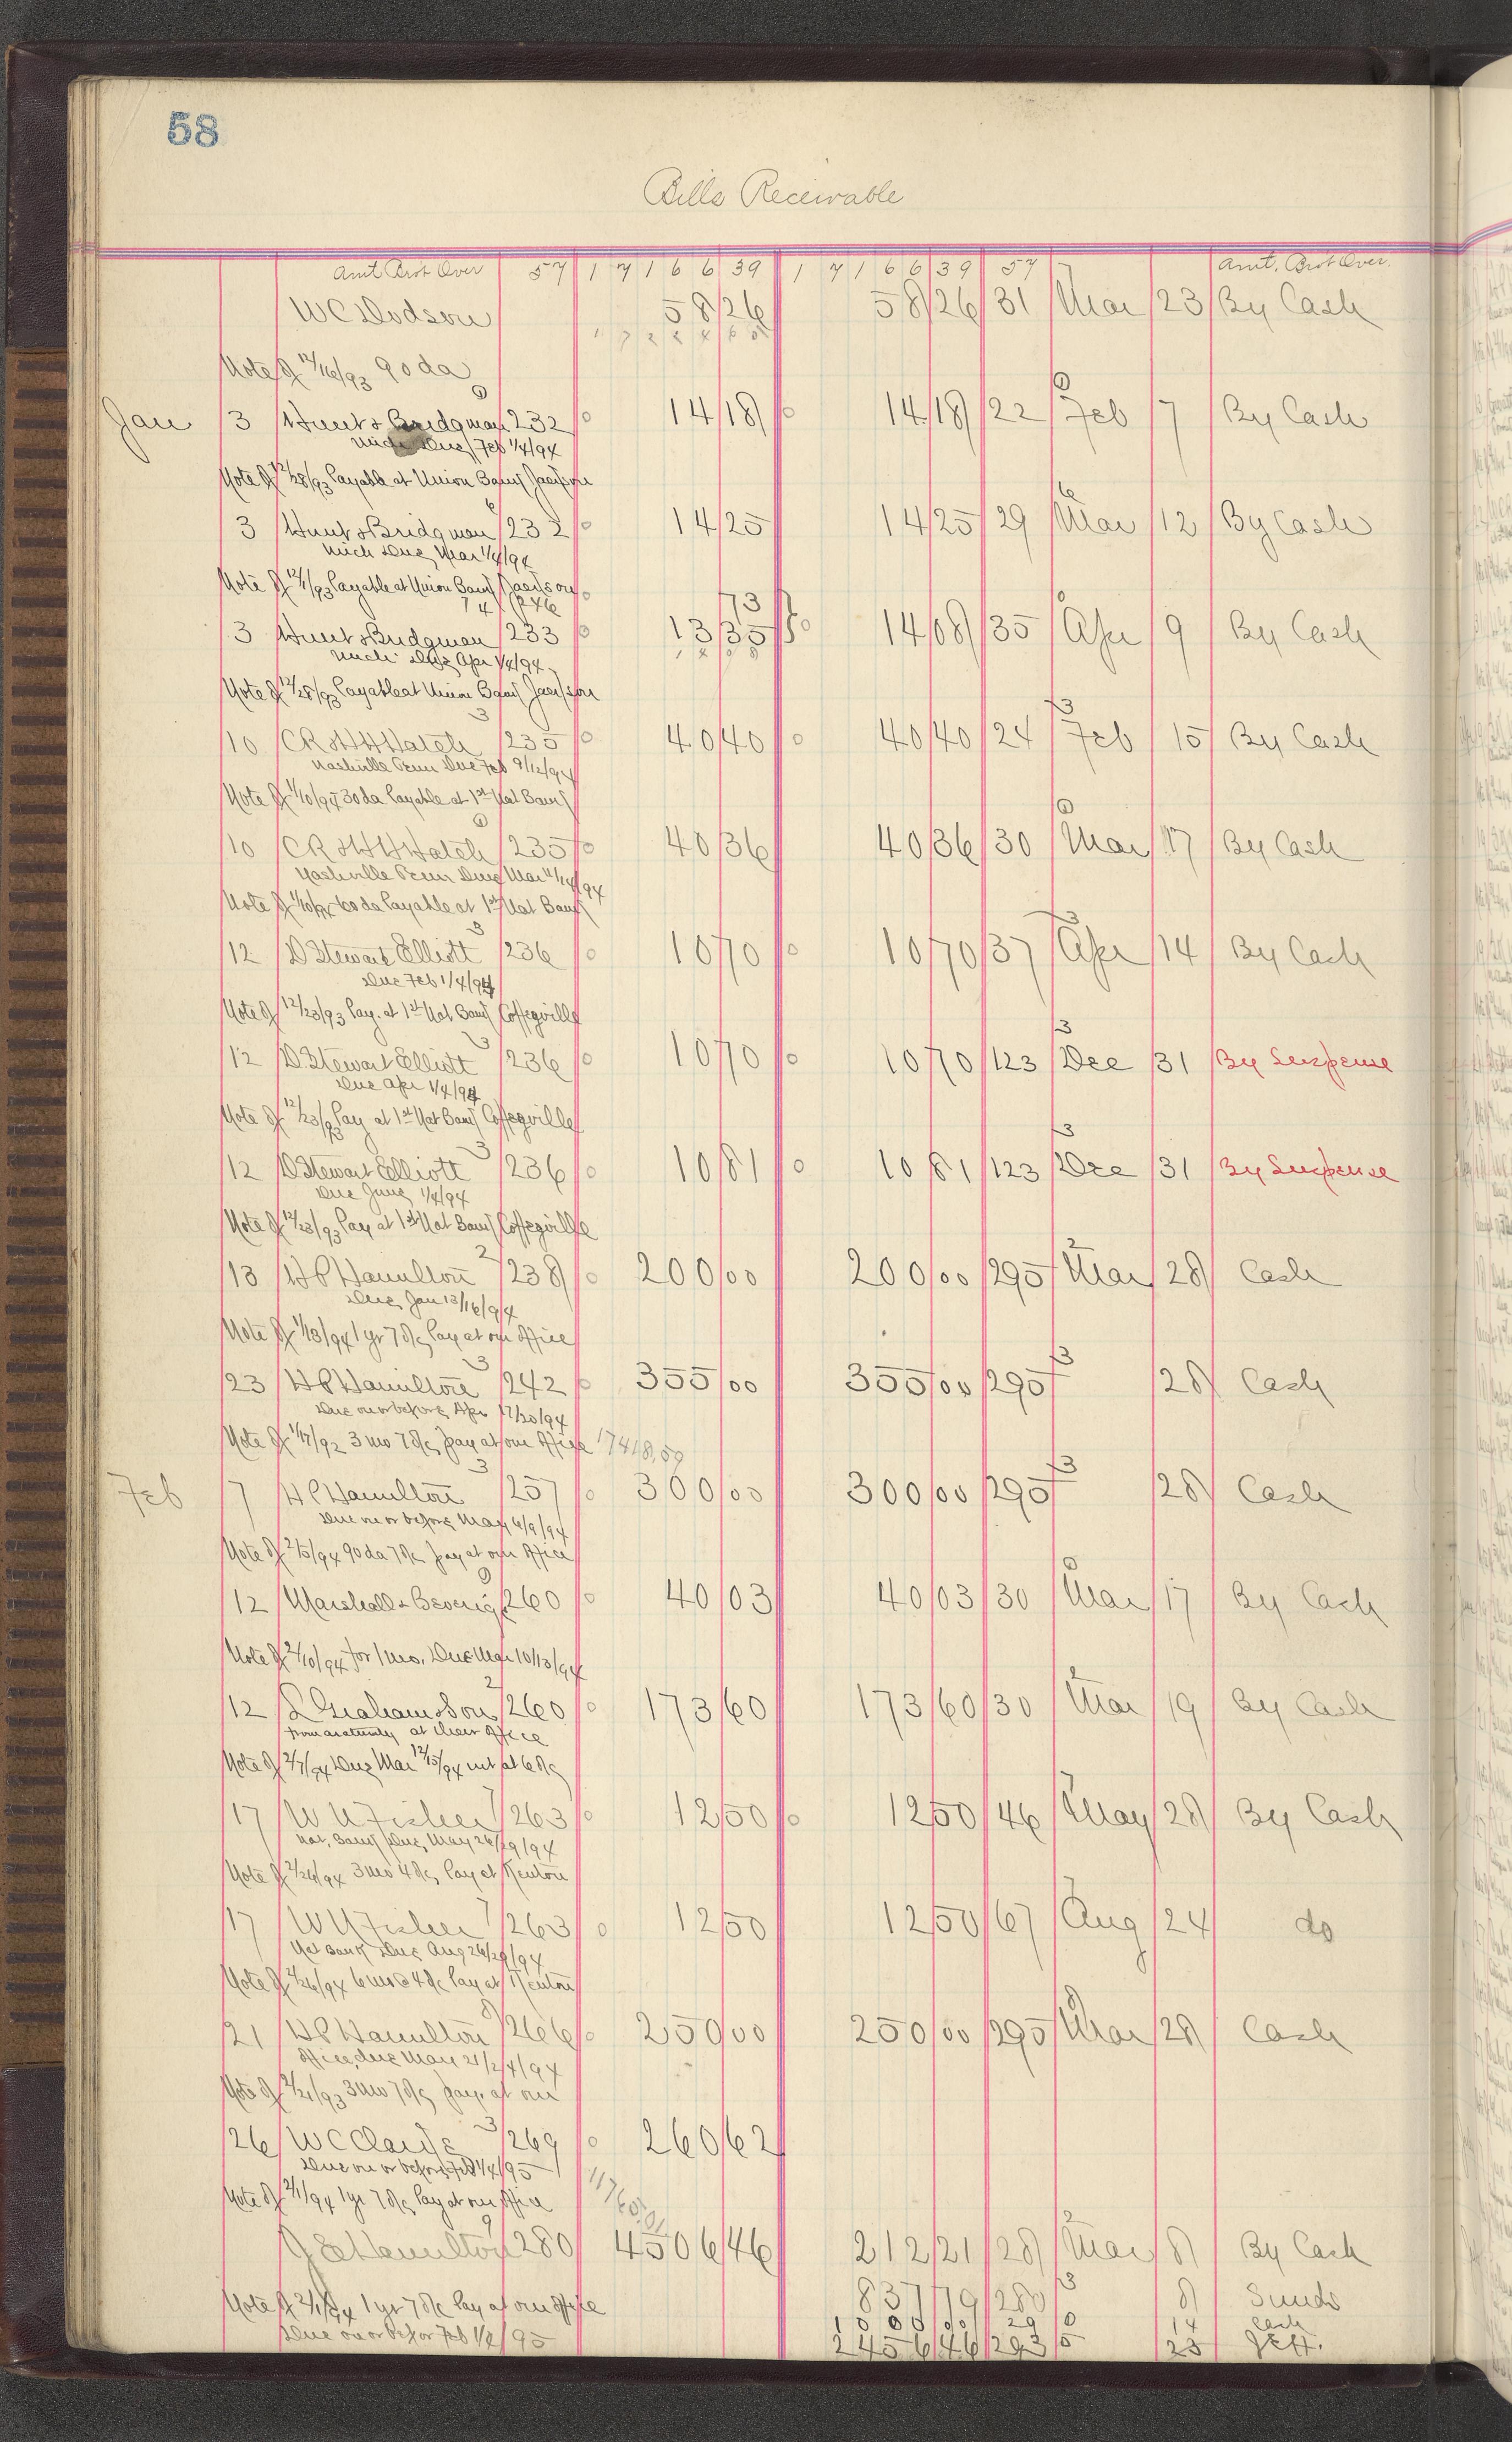 58
Bills Receivable
Amt Brot Over 57 1 7 1 6 6 39 1 7 1 6 6 39 57 Amt. Brot Over
W C Dodson 58 26 58 26 31 Mar 23 By Cash
1 7 2 2 4 6 5
Note of 12/16/93 90 da
Jan 3 Hunt & Bridgman 232 14 18 14 18 22 Feb 7 By Cash
Mich Due Feb 1/4/94
Note of 12/28/93 Payable at Union Bank Jackson
3 Hunt & Bridgman 232 14 25 14 25 29 Mar 12 By Cash
Mich Due Mar 1/4/94
Note of Payable at Union Bank Jackson
73
3 Hunt & Bridgman 233 13 35 14 08 35 Apr 9 By Cash
Mich Due Apr 1/4/94
Note of 12/28/93 Payable at Union Bank Jackson
10 C R & H H Hatch 235 40 40 40 40 24 Feb 15 By Cash
Nashville Tenn Due Feb 9/12/94
Note of 1/10/94 30 da Payable at 1st Nat Bank
10 C R & H H Hatch 235 40 36 40 36 30 Mar 17 By Cash
Nashville Tenn Due Mar 11/14/94
Note of 1/10/94 60 da Payable at 1st Nat Bank
12 D Stewart Elliott 236 10 70 10 70 37 Apr 14 By Cash
Due Feb 1/4/94
Note of 12/23/93 Pay. at 1st Nat Bank Coffeyville
12 D. Stewart Elliott 236 10 70 10 70 123 Dec 31 By Suspense
Due Apr 1/4/94
Note of 12/23/93 Pay at 1st Nat Bank Coffeyville
12 D Stewart Elliott 236 10 81 10 81 123 Dec 31 By Suspense
Due June 1/4/94
Note of 12/23/93 Pay at 1st Nat Bank Coffeyville
13 H P Hamilton 238 200 00 200 00 295 Mar 28 Cash
Due Jan 13/16/94
Note of 1/13/94 1 yr 7% Pay at our office
23 H P Hamilton 242 355 00 355 00 295 28 Cash
Due on or before Apr 17/20/94
Note of 1/17/92 3 mo 7% pay at our office 17418.59
Feb 7 H P Hamilton 257 300 00 300 00 295 28 Cash
Due on or before May 6/9/94
Note of 2/5/94 90 da 7% pay at our office
12 Marshall & 260 40 03 40 03 30 Mar 17 By Cash
Note of 2/10/94 for 1 mo. Due Mar 10/13/94
12 L Graham & Son 260 173 60 173 60 30 Mar 19 By Cash
from maturity at their office
Note of 2/7/94 Due Mar 12/15/94 int at 6%
17 W U Fisher 263 12 50 12 50 46 May 28 By Cash
Nat. Bank Due May 26/29/94
Note of 2/26/94 3 mo 4% Pay at Kenton
17 W U Fisher 263 12 50 12 50 67 Aug 24 do
Nat Bank Due Aug 26/29/94
Note of 2/26/94 6 mo @ 4% Pay at Kenton
21 H P Hamilton 266 250 00 250 00 295 Mar 28 Cash
office, due May 21/24/94
Note of 2/21/93 3 mo 7% pay. at our
26 W C Clark 269 260 62
Due on or before Feb 1/4/95
Note of 2/1/94 1 yr 7% Pay at our office
J E Hamilton 280 4506 46 212 21 28 Mar 8 By Cash
837 79 280 8 Sunds
Note of 2/1/94 1 yr 7% Pay at our office
1000 00 29 14 Cash
Due on or before Feb 1/4/95
2456 46 293 23